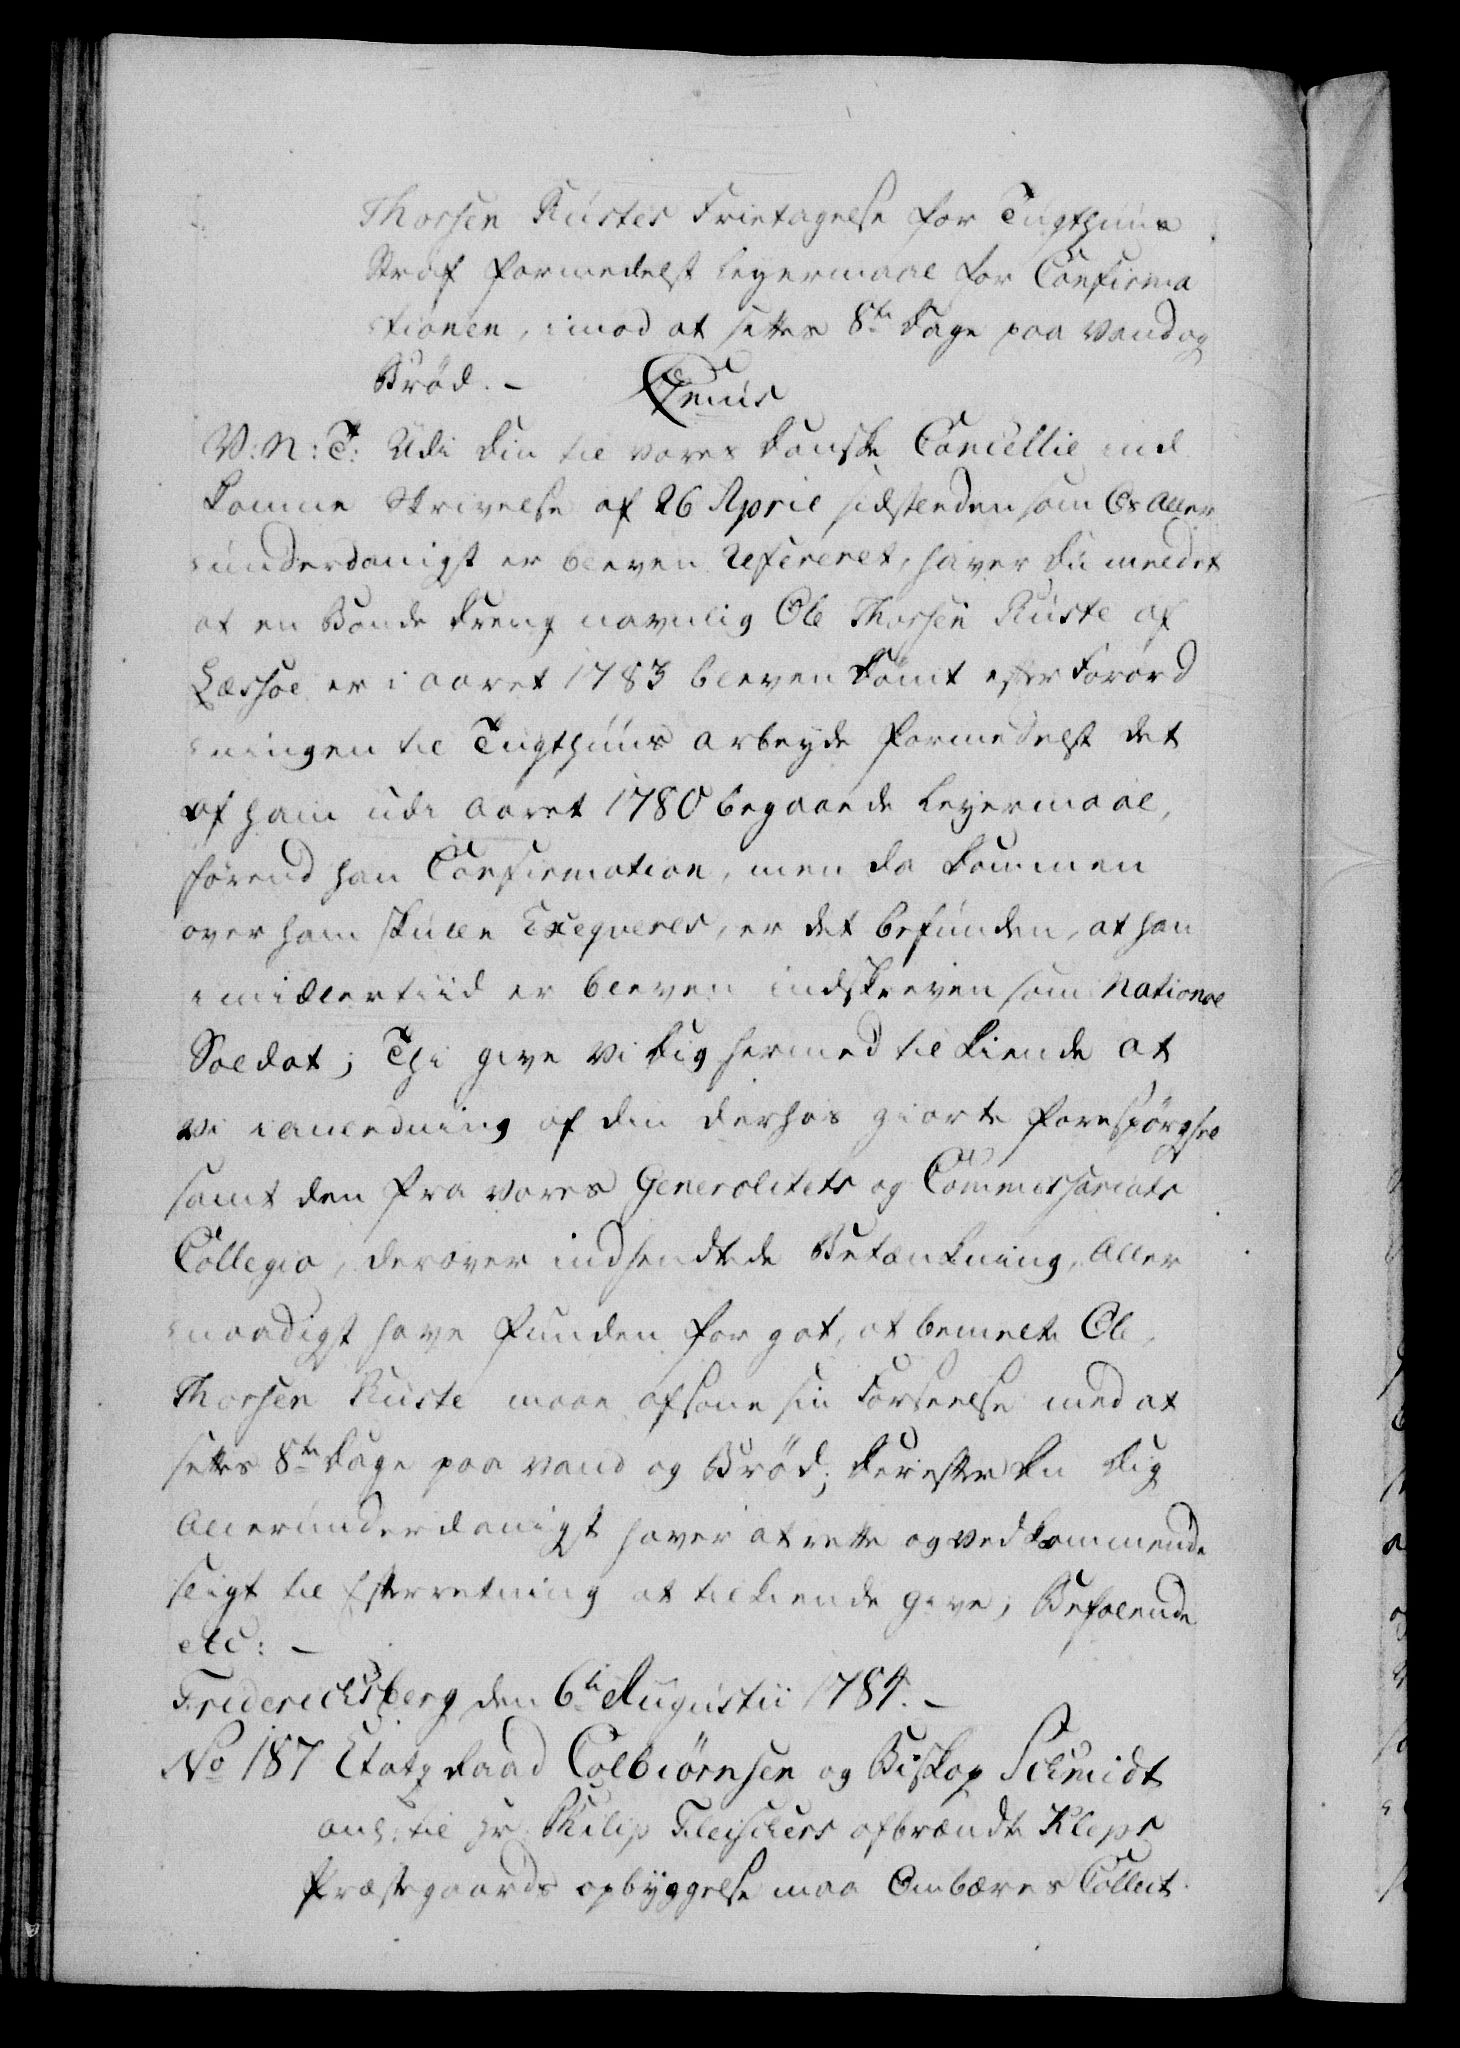 Thorsen Rustes Frietagelse for Tugthuus
Straf formedelst Leyermaal før Confirma
tionen, imod at settes 8te Dage paa Vand og
Brød. –
V: N: T: Udi din til vores danske Cancellie ind
komne Skrivelse af 26 April sidstleden som Os Aller
underdanigst er bleven Refereret, haver du meldet
at en Bonde Dreng navnlig Ole Thorsen Ruste af
Læssøe er i aaret 1783 bleven dømt efter Forord
ningen til Tugthuus Arbeyde formedelst det
af ham udi Aaret 1780 begaaede Leyermaal,
førend han Confirmation, men da Dommen
over ham skulle Exeqveres, er det befunden, at han
imidlertiid er bleven indskreven som National
Soldat; Thi give Vi dig hermed til kiende at
Vi i anledning af din derhos giorte forespørgsel
samt den fra vores Generalitets og Commissariats
Collegio, derover indsendte Betænkning, Aller
naadigst have funden for got, at bemelte Ole
Thorsen Ruste maae afsone sin Forseelse med at
settes 8te Dage paa Vand og Brød; Derefter du dig
Allerunderdanigst haver at rette og vedkommende
sligt til Efterretning at tilkiende give; Befalende
etc: –
Friderichsberg den 6te Augustii 1784. –
No 187 Etatz Raad Colbiørnsen og Biskop Schmidt
anl: til Hr. Philip Fleischers afbrændte Kleps
Præstegaards opbyggelse maa Ombæres Collect.